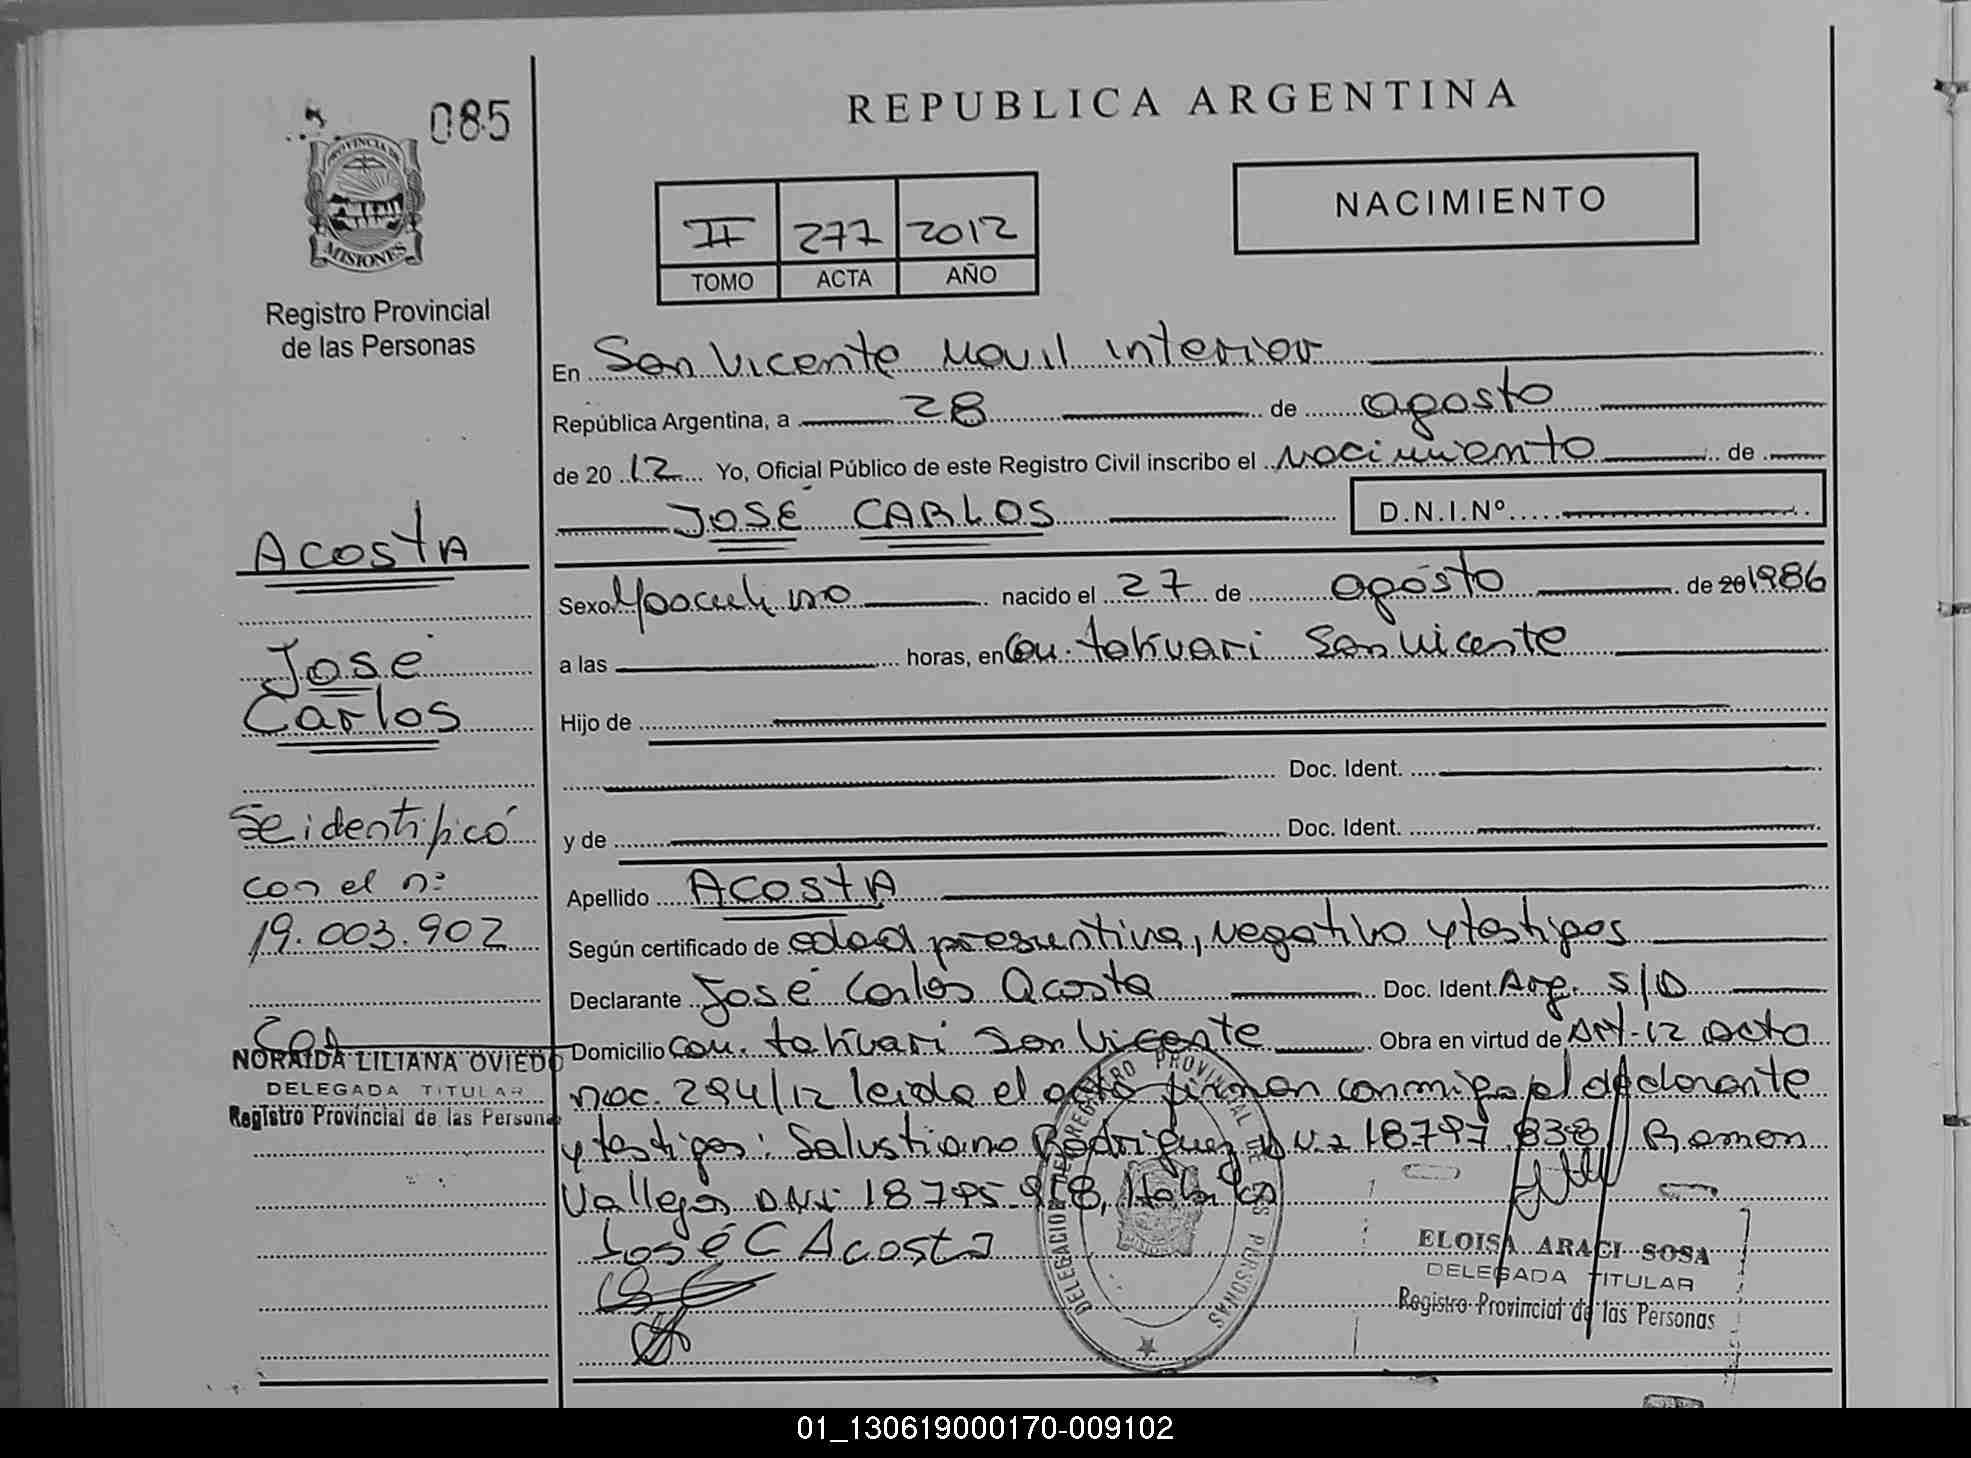 085
REPUBLICA ARGENTINA
PROVINCIA DE
MISIONES
Registro Provincial
de las Personas
II 277 2012
TOMO ACTA AÑO
NACIMIENTO
En San Vicente Movil interior
República Argentina, a 28 de agosto
de 20 12 Yo, Oficial Público de este Registro Civil inscribo el Nacimiento de
JOSÉ CARLOS D.N.I.Nº
ACOSTA
Sexo Masculino nacido el 27 de agosto de 20 1986
a las horas, en Col. takuari San Vicente
José
Carlos
Hijo de
Doc. Ident.
y de Doc. Ident.
Se identificó
con el n:
19.003.902
Apellido ACOSTA
Según certificado de edad presuntiva, negativo y testigos
Declarante José Carlos Acosta Doc. Ident. Arg. S/D
Domicilio Col. takuari San Vicente Obra en virtud de Art-12 acta
nac. 294/12 leida el acta firman conmigo el declarante
y testigos: Salustiano Rodriguez 18.797.838 Ramon
Vallejos DNI 18.795.
José C Acosta
NORAIDA LILIANA OVIEDO
DELEGADA TITULAR
Registro Provincial de las Persona
DELEGACION DEL REGISTRO PROVINCIAL DE LAS PERSONAS
ELOISA ARACI SOSA
DELEGADA TITULAR
Registro Provincial de las Personas
01_130619000170-009102